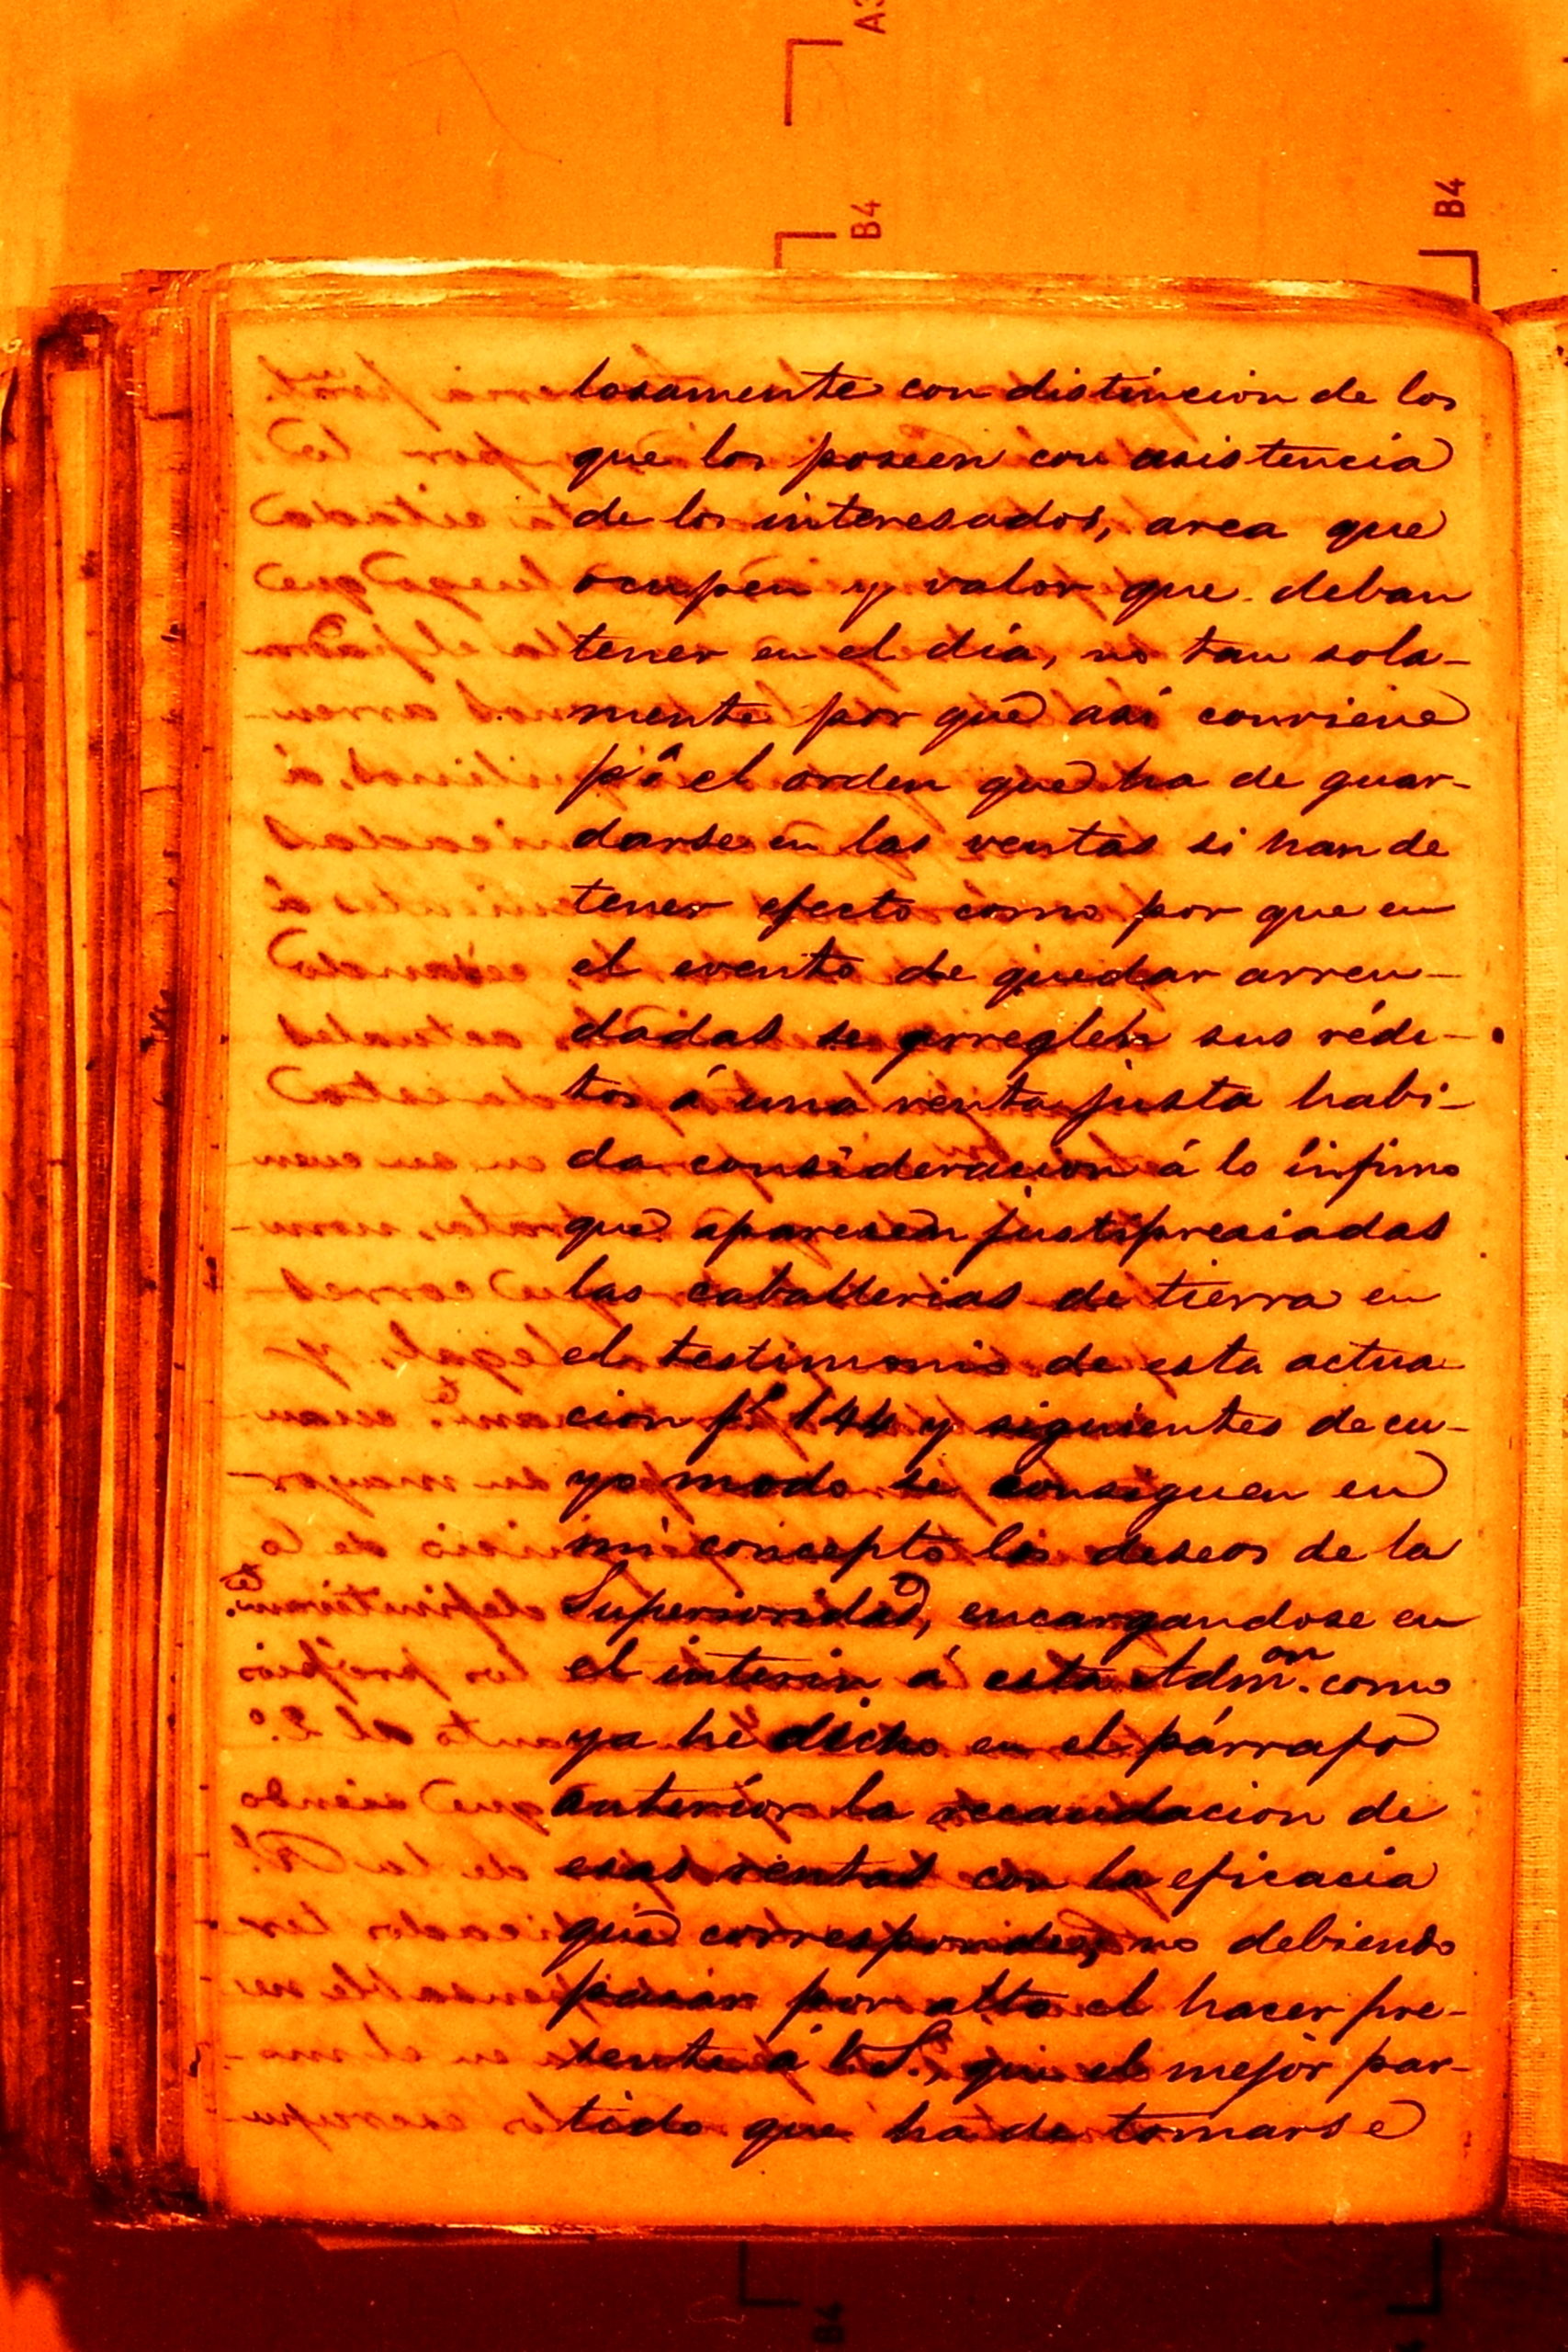 A3
B4
B4
losamente con distincion de los
que los poseen con asistencia
de los interesados, area que
ocupen y valor que deban
tener en el dia, no tan sola-
mente por que asi conviene
pâ el orden que ha de guar-
darse en las ventas si han de
tener efecto como por que en
el evento de quedar arren-
dadas se arreglen sus rédi-
tos á una renta justa habi-
da consideracion á lo ínfimo
que aparesen justipreciadas
las caballerias de tierra en
el testimonio de esta actua
cion f.s 144 y siguientes de cu-
yo modo se consiguen en
mi concepto los deseos de la
Superioridad, encargandose en
el interin á esta Adm.on como
ya he dicho en el párrafo
anterior la recaudacion de
esas rentas con la eficacia
que corresponde, no debiendo
pasar por alto el hacer pre-
sente á V.S., que el mejor par-
tido que ha de tomarse
B4